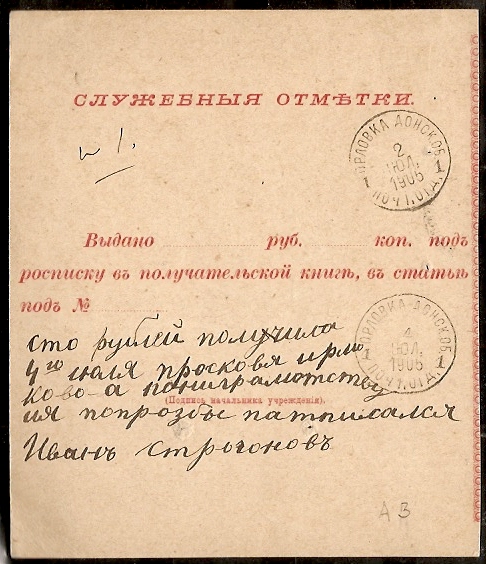 СЛУЖЕБНЫЯ ОТМѢТКИ.
№ 1.
ОРЛОВКА ДОНСКОЙ
2
ЮЛ.
1905
1 1
ПОЧ.Т.ОТД.
Выдано руб. коп. подъ
росписку въ получательской книгѣ, въ статьѣ
подъ №
ОРЛОВКА-ДОНСКОЙ
4
ЮЛ.
1905
1 1
ПОЧ.Т.ОТД.
сто рублей получила
4го июля просковя ирмо
кова а понигромотству
ия попрозбе патписался
(Подпись начальника учрежденія).
Иванъ Строгоновъ
АВ